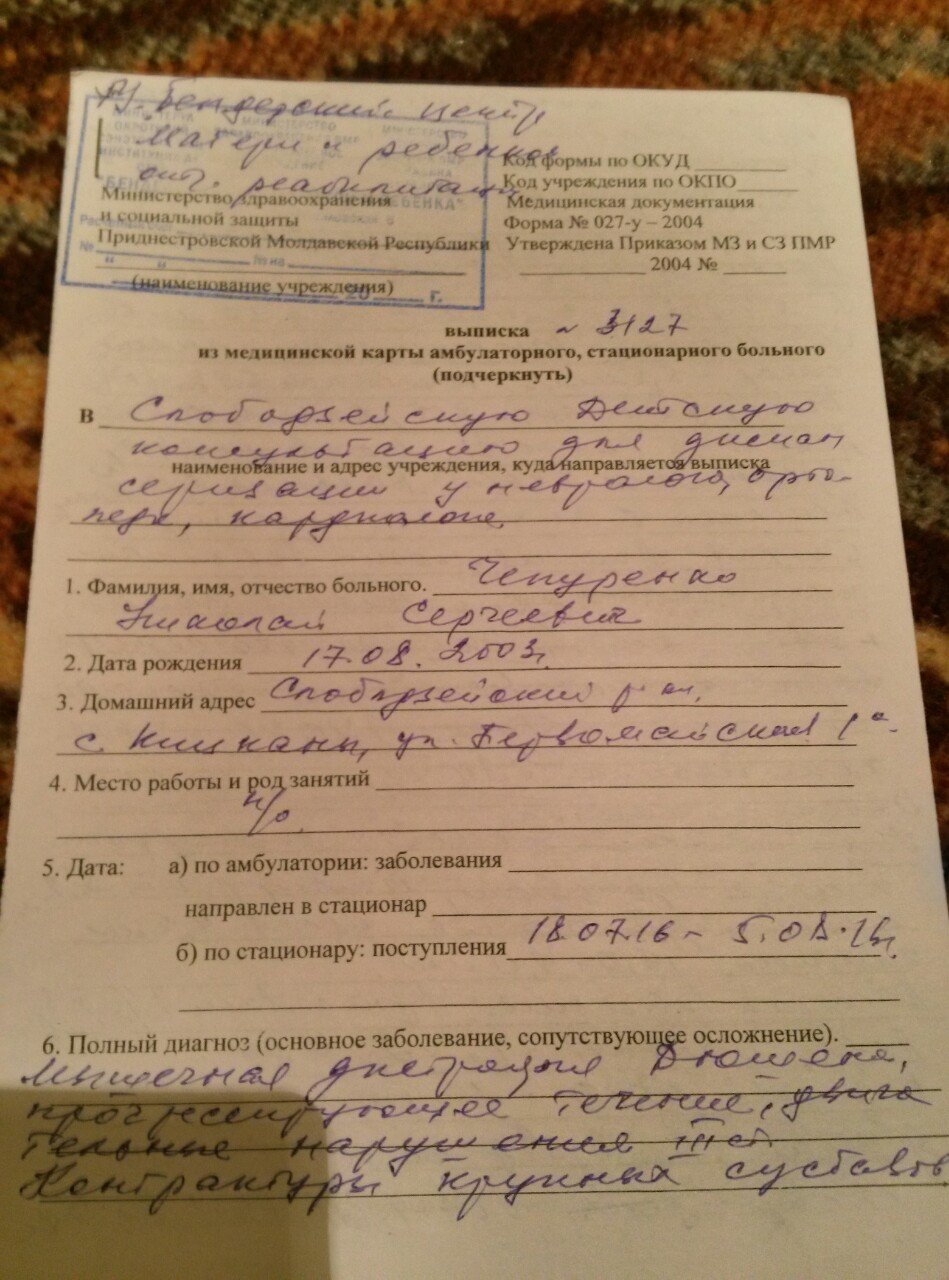 ГУ Бендерский центр
Матери и ребенка
отд. реабилитации
Министерство здравоохранения
и социальной защиты
Приднестровской Молдавской Республики
(наименование учреждения)
Код формы по ОКУД
Код учреждения по ОКПО
Медицинская документация
Форма № 027-у – 2004
Утверждена Приказом МЗ и СЗ ПМР
2004 №
выписка ~ 3127
из медицинской карты амбулаторного, стационарного больного
(подчеркнуть)
В Слободзейскую Детскую
консультацию для диспан
наименование и адрес учреждения, куда направляется выписка
серизации у невролога, орто-
педа, кардиолога
1. Фамилия, имя, отчество больного. Чепуренко
Николай Сергеевич
2. Дата рождения 17.08.2003г.
3. Домашний адрес Слободзейский р-он,
с. Кицканы, ул. Первомайская 1а
4. Место работы и род занятий
н/о
5. Дата: а) по амбулатории: заболевания
направлен в стационар
б) по стационару: поступления 18.07.16 - 5.08.16г.
6. Полный диагноз (основное заболевание, сопутствующее осложнение).
Мышечная дистрофия Дюшена,
прогрессирующее течение, двига
тельные нарушения III ст.
Контрактуры крупных суставов